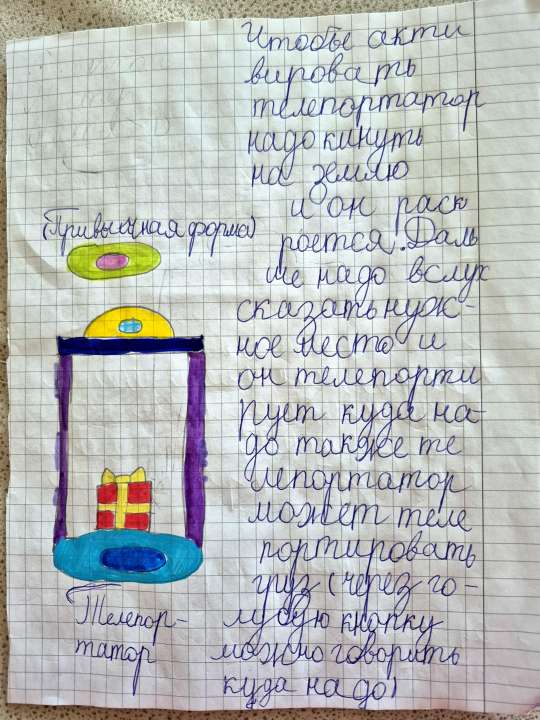 Чтобы акти
вировать
телепортатор
надо кинуть
на землю
и он раск
роется. Даль
ше надо вслух
сказать нуж-
ное место и
он телепорти
рует куда на-
до также те
лепортатор
может теле
портировать
груз (через го-
лубую кнопку
можно говорить
куда надо)
(Привычная форма)
Телепор-
татор